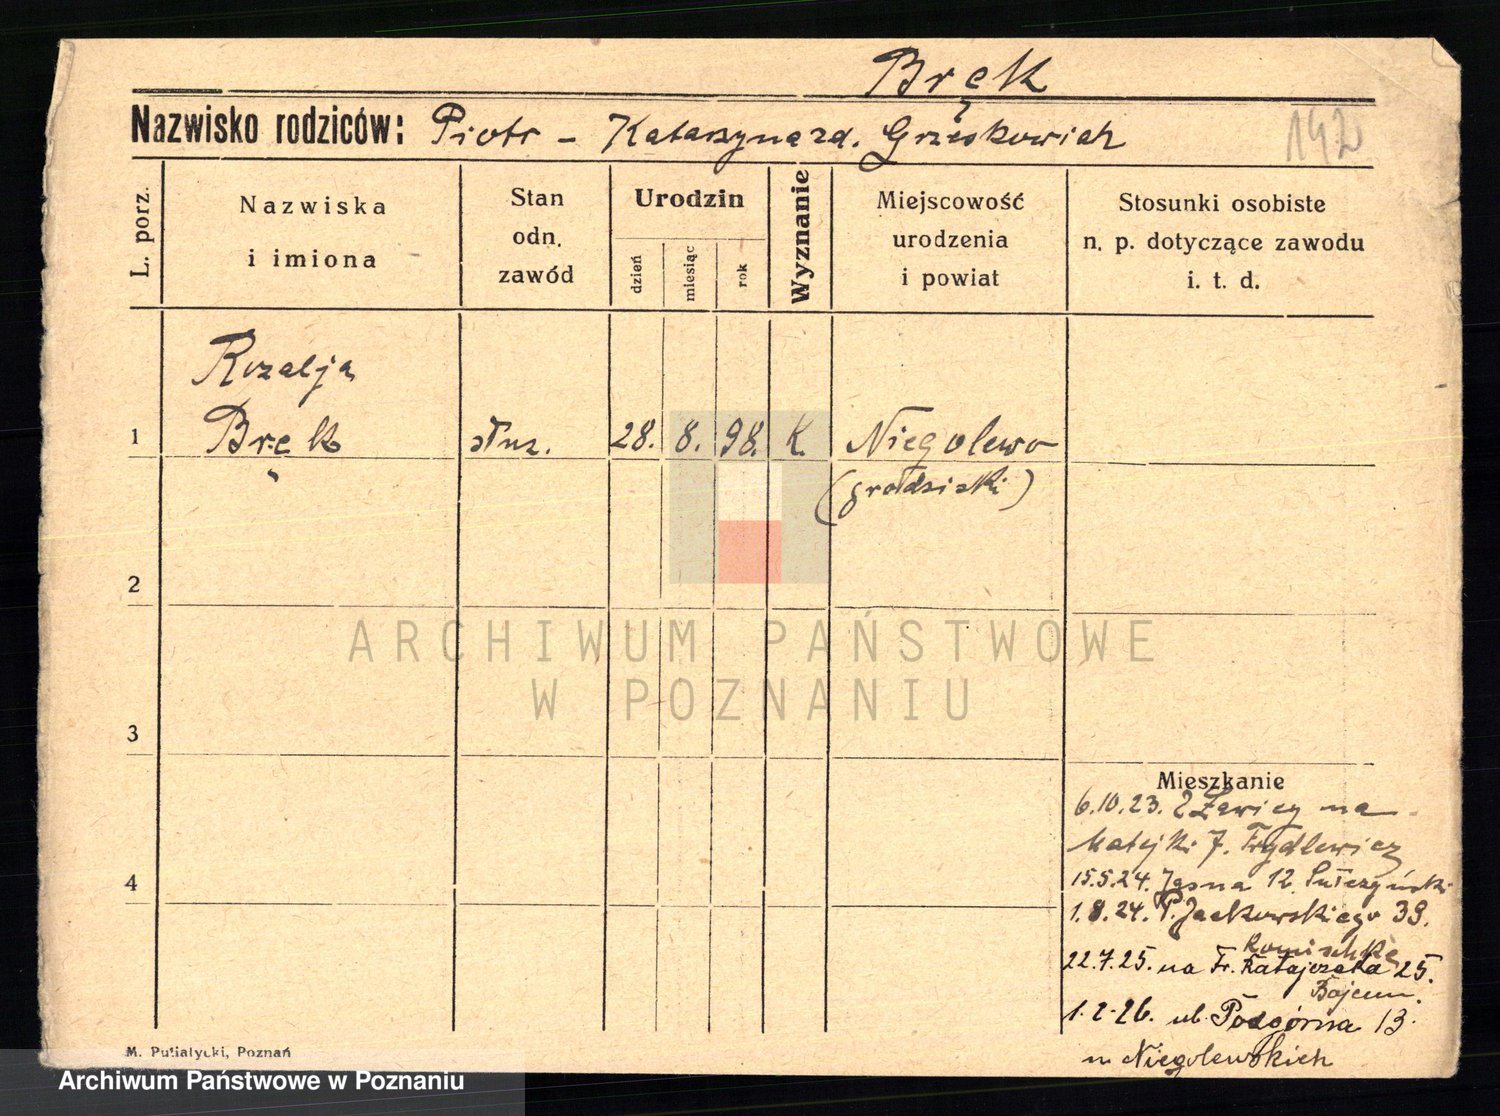 Bręk
Nazwisko rodziców: Piotr - Katarzyna zd. Grześkowiak
142
L. porz.
Nazwiska
i imiona
Stan
odn.
zawód
Urodzin
dzień
miesiąc
rok
Wyznanie
Miejscowość
urodzenia
i powiat
Stosunki osobiste
n. p. dotyczące zawodu
i. t. d.
Rozalja
1 Bręk służ. 28. 8. 98. K. Niegolewo
(grodziski)
2
ARCHIWUM PAŃSTWOWE
W POZNANIU
3
Mieszkanie
6.10.23. Z Żawicy na
Matejki 7. Frydlewicz
4
15.5.24. Jasna 12.
1.8.24. P. Jackowskiego 39.
22.7.25. na Fr. Ratajczaka 25.
1.2.26. ul. Podgórna 13.
u Niegolewskich
M. Putiatycki, Poznań
Archiwum Państwowe w Poznaniu